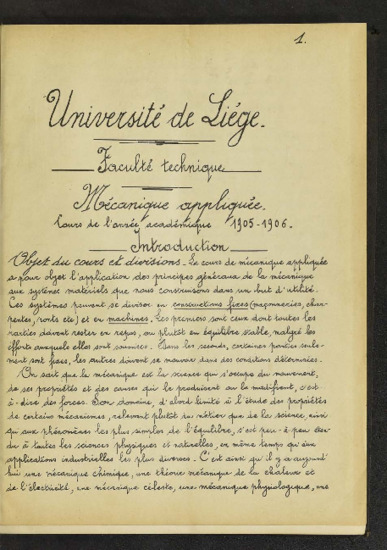 1.
Université de Liége.
Faculté technique
Mécanique appliquée.
Cours de l'année académique 1905-1906.
Introduction
Objet du cours et divisions. Le cours de mécanique appliquée
a pour objet l'application des principes généraux de la mécanique
aux systèmes matériels que nous construisons dans un but d'utilité.
Ces systèmes peuvent se diviser en constructions fixes (maçonneries, char-
pentes, ponts etc) et en machines. Les premiers sont ceux dont toutes les
parties doivent rester en repos, ou plutôt en équilibre stable, malgré les
efforts auxquels elles sont soumises. Dans les seconds, certaines parties seule-
ment sont fixes, les autres doivent se mouvoir dans des conditions déterminées.
On sait que la mécanique est la science qui s'occupe du mouvement,
de ses propriétés et des causes qui le produisent ou le modifient, c'est
à-dire des forces. Son domaine, d'abord limité à l'étude des propriétés
de certains mécanismes, relevant plutôt du métier que de la science, ainsi
qu'aux phénomènes les plus simples de l'équilibre, s'est peu à peu éten-
du à toutes les sciences physiques et naturelles, en même temps qu'aux
applications industrielles les plus diverses. C'est ainsi qu'il y a aujourd'
hui une mécanique chimique, une théorie mécanique de la chaleur et
de l'électricité, une mécanique céleste, une mécanique physiologique, une